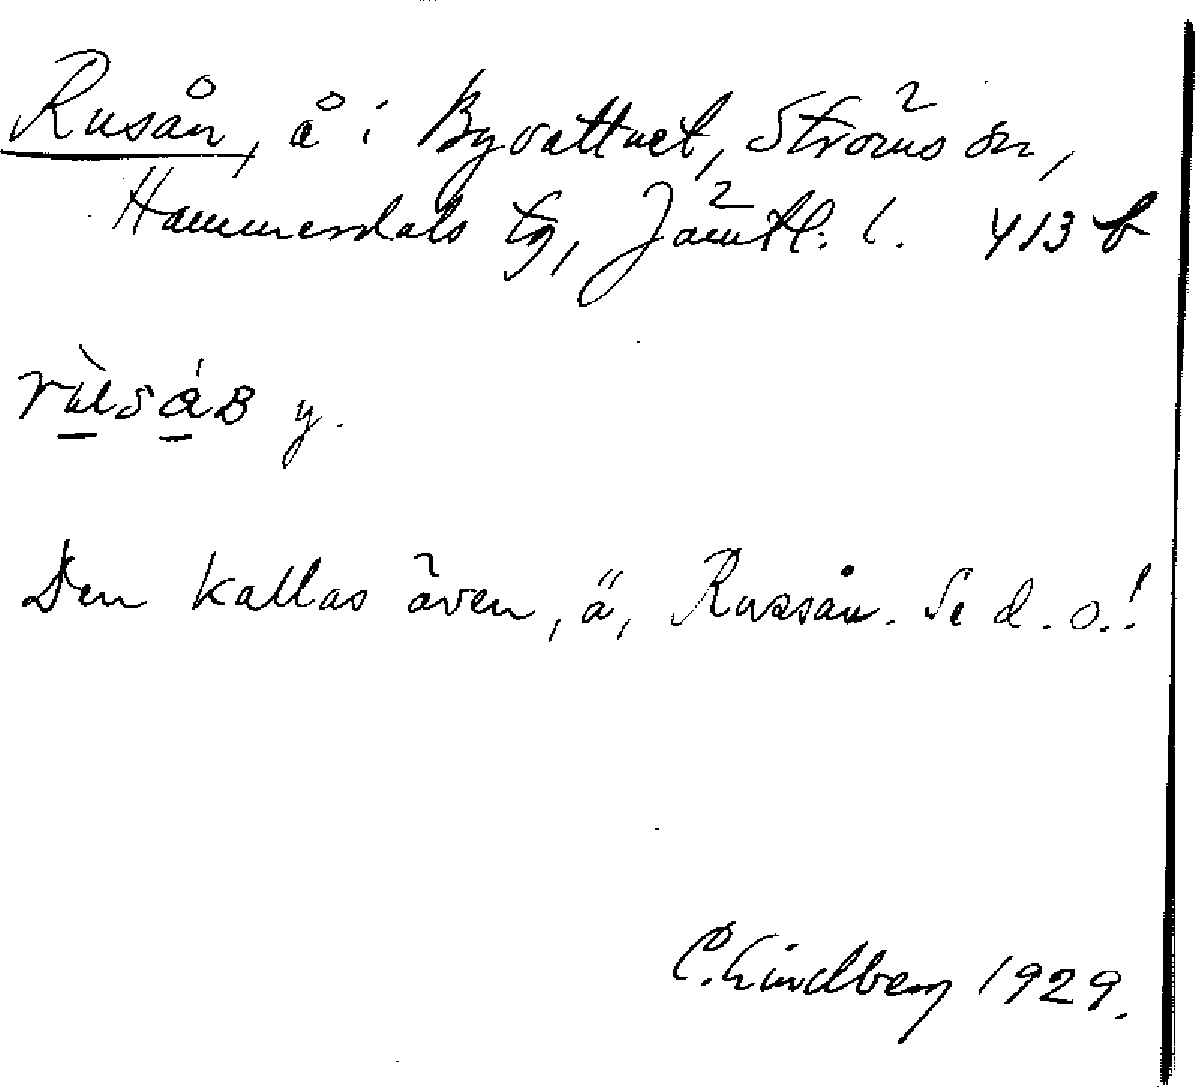 Rusån, å i Byvattnet, Ströms sn,
Hammerdals tg, Jämtl. l. 413 b
y.
Den kallas även, ä, Russån. Se d. o.!
C. Lindberg 1929.